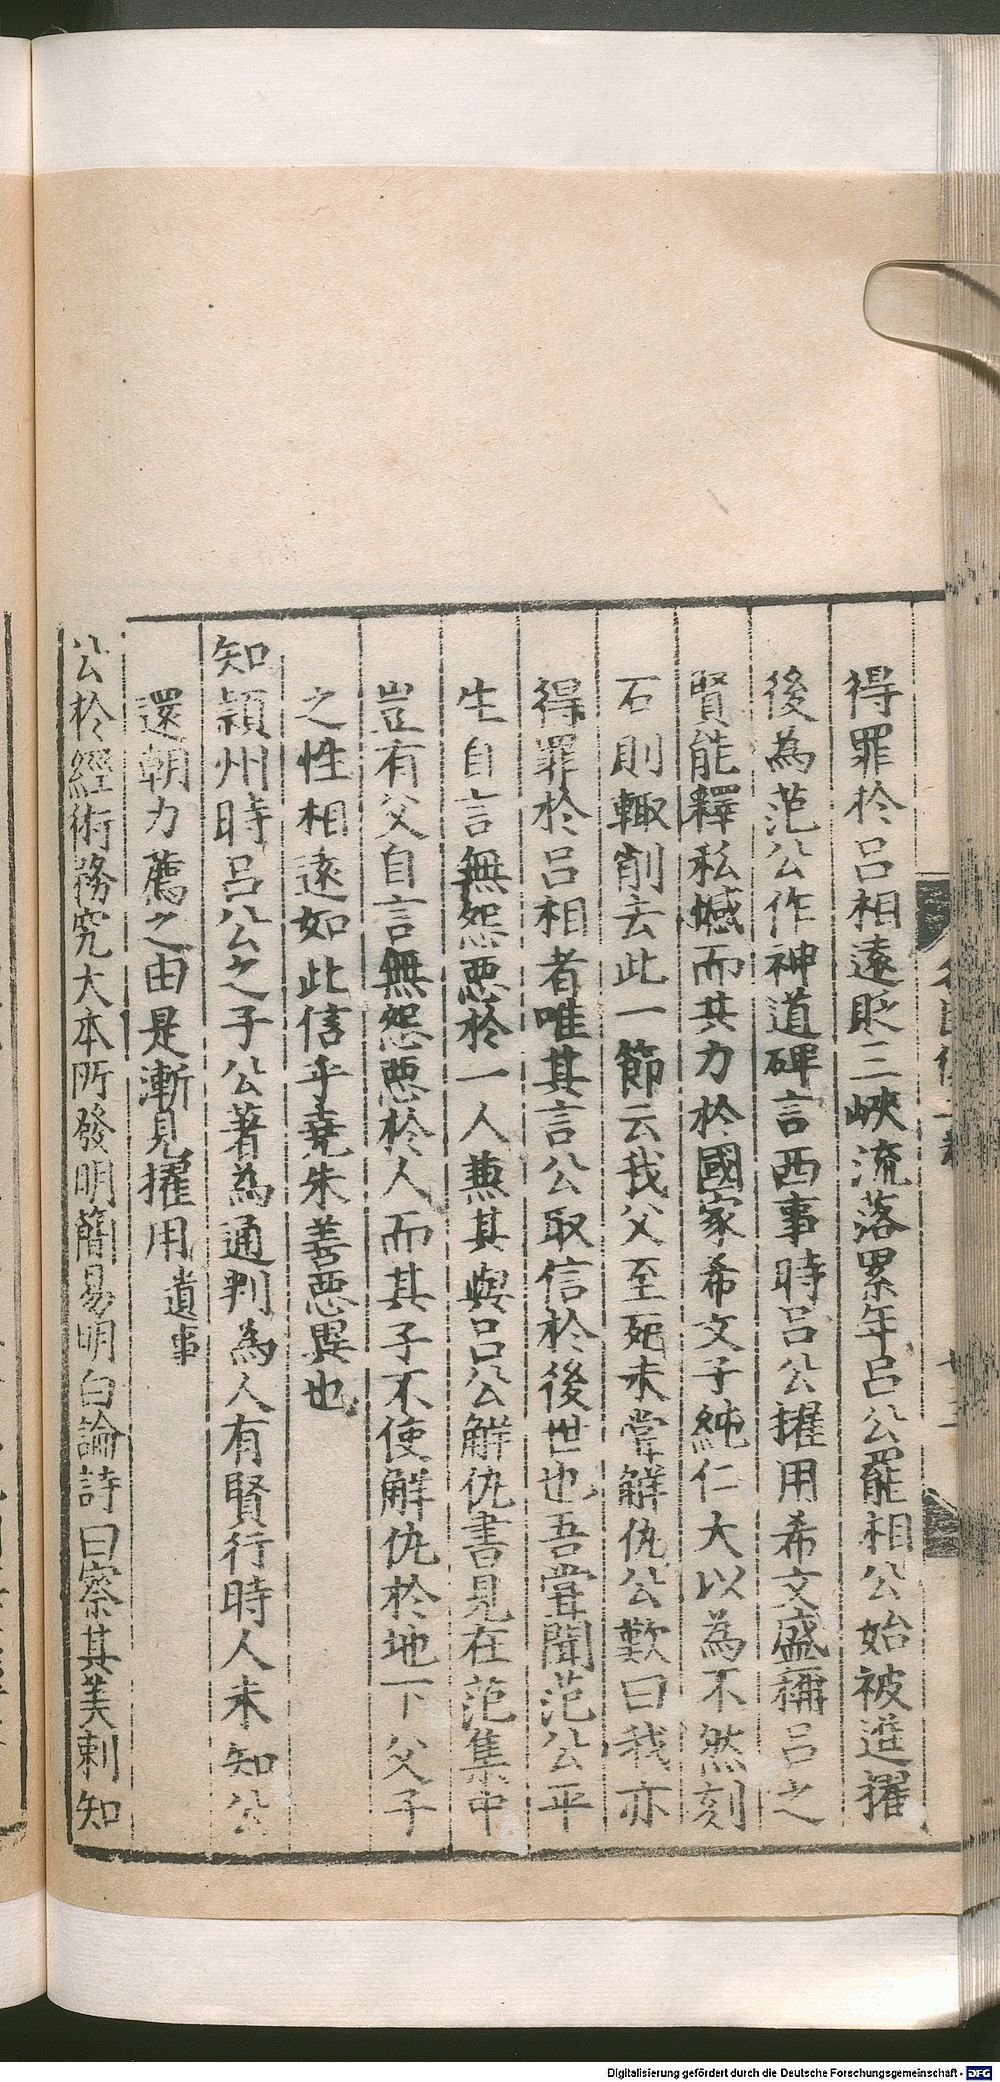 得罪於呂相遠貶三峽流落累年呂公罷相公始被進擢
後為范公作神道碑言西事時呂公擢用希文盛稱呂之
賢能釋私憾而共力於國家希文子純仁大以為不然刻
石則輙削去此一節云我父至死未甞解仇公歎曰我亦
得罪於呂相者唯其言公取信於後世也吾甞聞范公平
生自言無怨悪於一人兼其與呂公解仇書見在范集中
豈有父自言無怨悪於人而其子不使解仇於地下父子
之性相遠如此信乎堯朱善悪異也
知潁州時呂公之子公著為通判為人有賢行時人未知公
還朝力薦之由是漸見擢用遺事
公於經術務究大本所發明簡易明白論詩曰察其美刺知
Digitalisierung gefördert durch die Deutsche Forschungsgemeinschaft - DFG